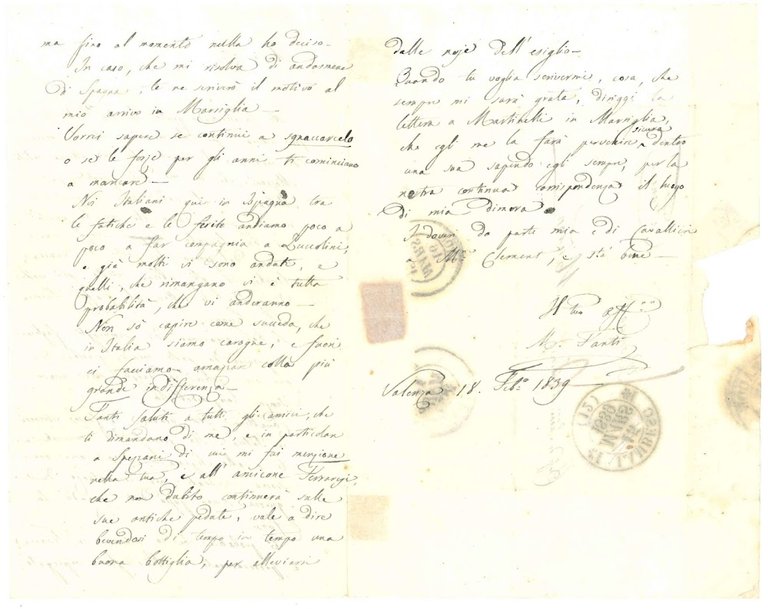 ma fino al momento nulla ho deciso.
In caso, che mi risolva di andarmene
di Spagna, te ne scriverò il motivo al
mio arrivo in Marsiglia
Vorrei sapere se continui a
o se le forze per gli anni ti cominciano
a mancare.
Noi Italiani qui in Ispagna tra
le fatiche e le ferite andiamo poco a
poco a far compagnia a
e già molti vi sono andati, e
quelli, che rimangono vi è tutta
probabilità, che vi anderanno
Non sò capire come succeda, che
in Italia siamo carogne, e fuori
ci facciamo amazzar colla più
grande indifferenza
Tanti saluti a tutti gli amici, che
ti dimandano di me, e in particolar
a di cui mi fai menzione
nella tua, e all' amicone
che non dubito continuerà sulle
sue antiche pedate, vale a dire
bevendosi di tempo in tempo una
buona bottiglia, per alleviarsi
dalle noje dell' esiglio
Quando tu voglia scrivermi, cosa, che
sempre mi sarà grata, diriggi la
lettera a Martinelli in Marsiglia,
che egli me la farà pervenire sicura dentro
una sua sapendo egli sempre, per la
nostra continua corrispondenza il luogo
di mia dimora.
da parte mia e di
a Clement, e stà bene
Il tuo aff.mo
M. Fanti
Valenza 18. Feb.o 1839